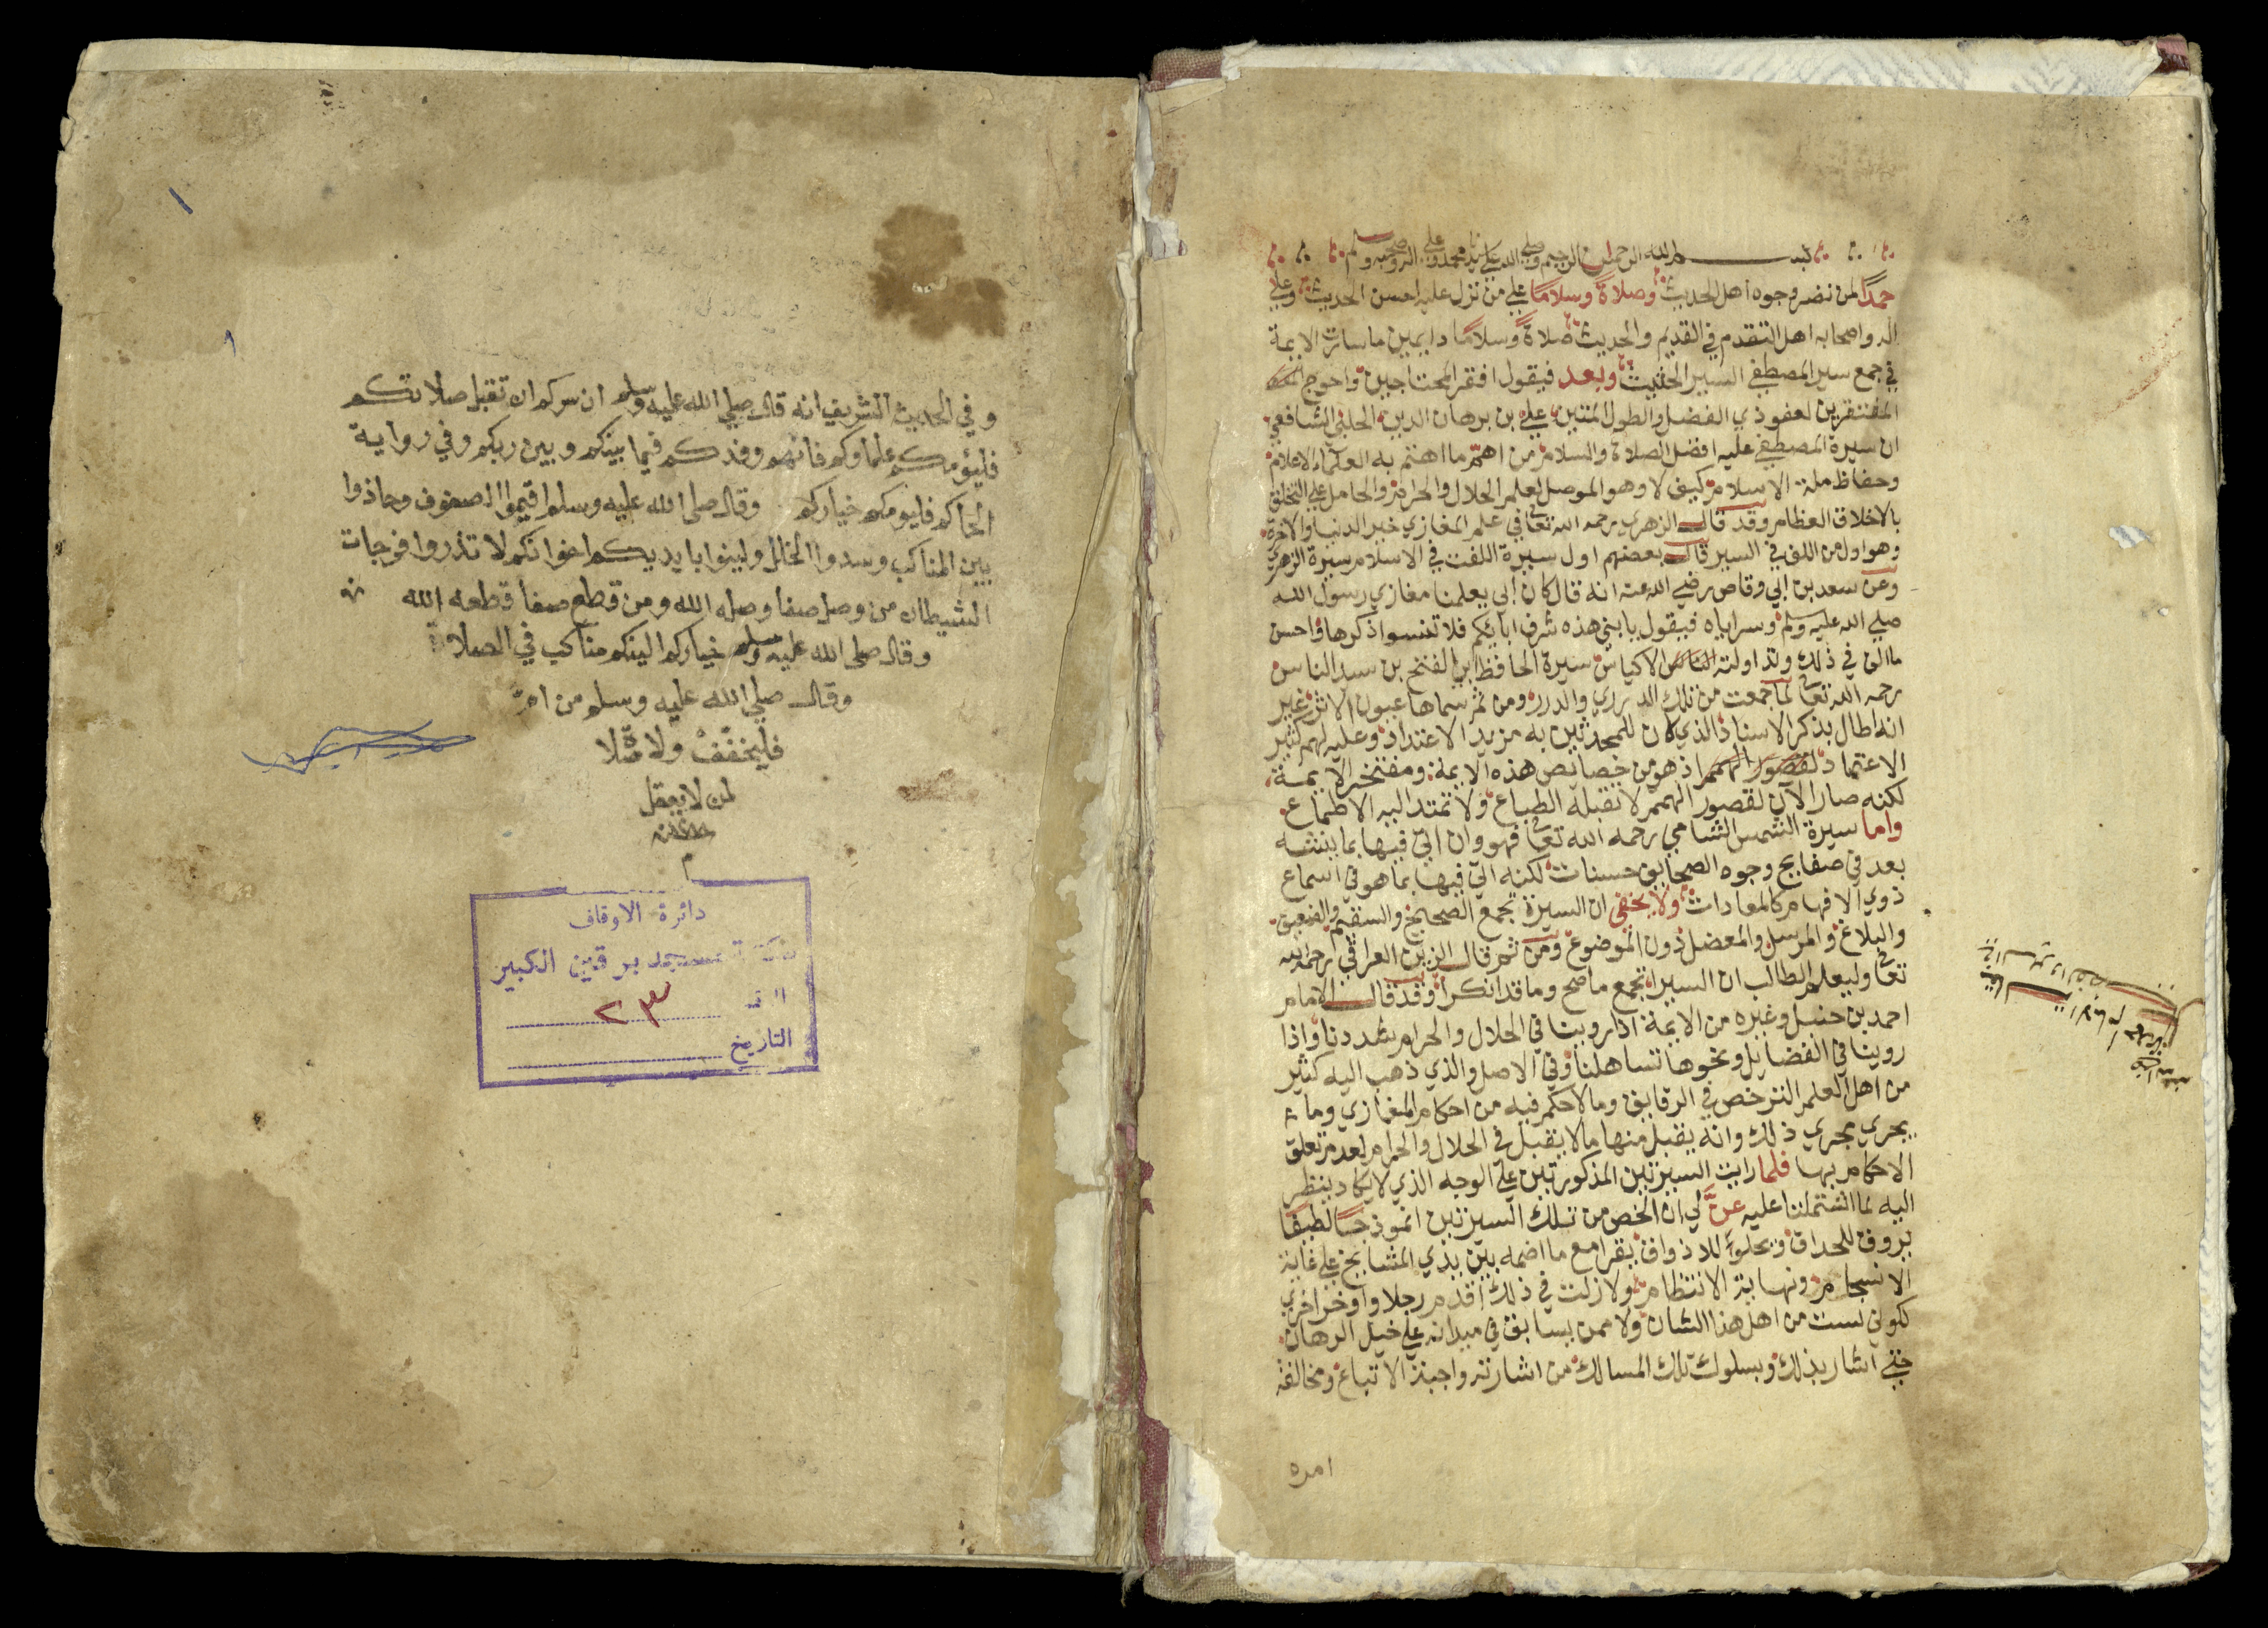 بســـــم الله الرحمن الرحيم وصلى الله على سيدنا محمد وعلى اله وصحبه وسلم
حمدًا لمن نضر وجوه اهل الحديث وصلاةً وسلامًا على من نزل عليه احسن الحديث وعلى
اله واصحابه اهل التقدم في القديم والحديث صلاةً وسلامًا دايمين ما سارت الايمة
في جمع سير المصطفى السير الحثيث وبعد فيقول افقر المحتاجين واحوج
المفتقرين لعفو ذي الفضل والطول المتين علي بن برهان الدين الحلبي الشافعي
ان سيرة المصطفى عليه افضل الصلاة والسلام من اهم ما اهتم به العلماء الاعلام
وحفاظ ملة الاسلام كيف لا وهو الموصل لعلم الحلال والحرام والحامل على التخلق
بالاخلاق العظام وقد قال الزهري رحمه الله تعالى في علم المغازي خير الدنيا والاخرة
وهو اول من الف في السير قال بعضهم اول سيرة الفت في الاسلام سيرة الزهري
وعن سعد بن ابي وقاص رضي الله عنه انه قال كان ابي يعلمنا مغازي رسول الله
صلى الله عليه وسلم وسراياه فيقول يا بني هذه شرف ابايكم فلا تنسوا ذكرها واحسن
ما الف في ذلك وتداولته الاكياس سيرة الحافظ ابي الفتح بن سيد الناس
رحمه الله تعالى لما جمعت من تلك الدراري والدرر ومن ثم سماها عيون الاثر غير
انه اطال بذكر الاسناد الذي كان للمحدثين به مزيد الاعتداد وعليه لهم كثير
الاعتماد لقصور الهمم اذ هو من خصايص هذه الايمة ومفتخر الايمة
لكنه صار الآن لقصور الهمم لا تقبله الطباع ولا تمتد اليه الاطماع
واما سيرة الشمس الشامي رحمه الله تعالى فهو وان اتى فيها بما
يعد في صفايح وجوه الصحايف حسنات لكنه اتى فيها بما هو في اسماع
ذوي الافهام كالمعادات ولا يخفى ان السيرة تجمع الصحيح والسقيم والضعيف
والبلاغ والمرسل والمعضل دون الموضوع ومن ثم قال الزين العراقي رحمه الله
تعالى وليعلم الطالب ان السيرا تجمع ما صح وما قد انكرا وقد قال الامام
احمد بن حنبل وغيره من الايمة اذا روينا في الحلال والحرام شددنا واذا
روينا في الفضايل ونحوها تساهلنا وفي الاصل والذي ذهب اليه كثير
من اهل العلم الترخص في الرقايق وما لا حكم فيه من احكام المغازي وما
يجري مجري ذلك وانه يقبل منها ما لا يقبل في الحلال والحرام لعدم تعلق
الاحكام بها فلما رايت السيرتين المذكورتين على الوجه الذي لا يكاد ينظر
اليه لما اشتملتا عليه عنَّ لي ان الخص من تلك السيرتين انموذجًا لطيفًا
يروق للاحداق ويحلو للاذواق يقرا مع ما اضمه بين يدي المشايخ على غاية
الانسجام ونهاية الانتظام ولا زلت في ذلك اقدم رجلا واوخر اخري
لكوني لست من اهل هذا الشان ولا ممن يسابق في ميدانه على خيل الرهان
حتى اشار بذلك وبسلوك تلك المسالك من اشارته واجبة الاتباع ومخالفة
امره
١
وفي الحديث الشريف انه قال صلى الله عليه وسلم ان سركم ان تقبل صلاتكم
فليؤمكم علماؤكم فانهم وفدكم فيما بينكم وبين ربكم وفي رواية
الحاكم فليومكم خياركم وقال صلى الله عليه وسلم اقيموا الصفوف وحاذوا
بين المناكب وسدوا الخلل ولينوا بايديكم اخوانكم لا تذروا فرجات
الشيطان من وصل صفا وصله الله ومن قطع صفا قطعه الله
وقال صلى الله عليه وسلم خياركم الينكم مناكب في الصلاة
وقال صلى الله عليه وسلم من امّ
فليخفف ولا مثلا
لمن لا يعقل
م
دائرة الاوقاف
مكتبة مسجد برقين الكبير
٢٣
التاريخ